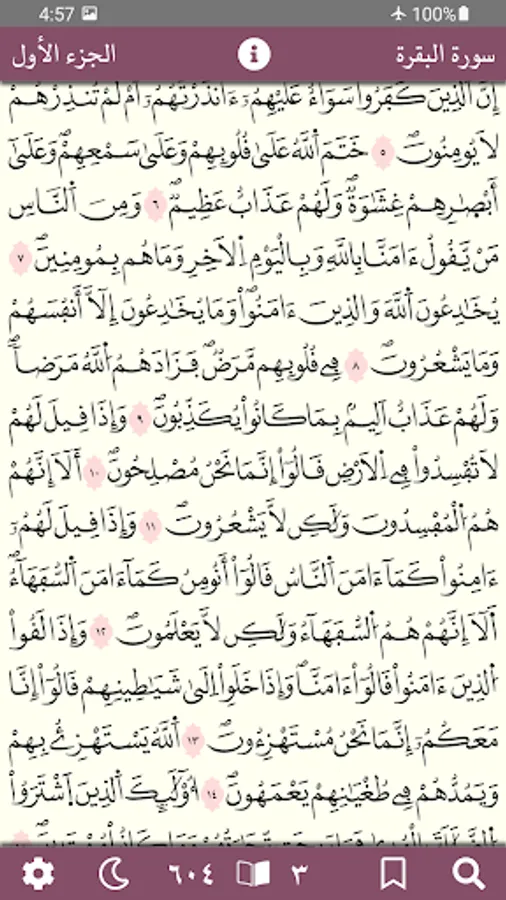 4:57 100%
سورة البقرة الجزء الأول
إِنَّ اَلذِينَ كَفَرُواْ سَوَآءٌ عَلَيْهِمُۥٓ ءَآنذَرْتَهُمُۥٓ أَمْ لَمْ تُنذِرْهُمْ
لَا يُومِنُونَۖ ٥ خَتَمَ اَللَّهُ عَلَىٰ قُلُوبِهِمْ وَعَلَىٰ سَمْعِهِمْۖ وَعَلَىٰٓ
أَبْصَٰرِهِمْ غِشَٰوَةٞۖ وَلَهُمْ عَذَابٌ عَظِيمٞۖ ٦ وَمِنَ اَلنَّاسِ
مَنْ يَّقُولُ ءَامَنَّا بِاللَّهِ وَبِالْيَوْمِ اِلَاخِرِ وَمَا هُم بِمُومِنِينَۖ ٧
يُخَٰدِعُونَ اَللَّهَ وَالذِينَ ءَامَنُواْۖ وَمَا يُخَٰدِعُونَ إِلَّآ أَنفُسَهُمْ
وَمَا يَشْعُرُونَۖ ٨ فِے قُلُوبِهِم مَّرَضٞۖ فَزَادَهُمُ اَللَّهُ مَرَضاٗۖ
وَلَهُمْ عَذَابٌ أَلِيمُۢ بِمَا كَانُواْ يُكَذِّبُونَۖ ٩ وَإِذَا قِيلَ لَهُمْ
لَا تُفْسِدُواْ فِے اِلَارْضِ قَالُوٓاْ إِنَّمَا نَحْنُ مُصْلِحُونَۖ ١٠ أَلَآ إِنَّهُمْ
هُمُ اُلْمُفْسِدُونَ وَلَٰكِن لَّا يَشْعُرُونَۖ ١١ وَإِذَا قِيلَ لَهُمُۥٓ
ءَامِنُواْ كَمَآ ءَامَنَ اَلنَّاسُ قَالُوٓاْ أَنُومِنُ كَمَآ ءَامَنَ اَلسُّفَهَآءُۖ
أَلَآ إِنَّهُمْ هُمُ اُلسُّفَهَآءُ وَلَٰكِن لَّا يَعْلَمُونَۖ ١٢ وَإِذَا لَقُواْ
اُلذِينَ ءَامَنُواْ قَالُوٓاْ ءَامَنَّاۖ وَإِذَا خَلَوِاْ اِلَىٰ شَيَٰطِينِهِمْ قَالُوٓاْ إِنَّا
مَعَكُمُۥٓ إِنَّمَا نَحْنُ مُسْتَهْزِءُونَۖ ١٣ اَللَّهُ يَسْتَهْزِئُ بِهِمْ
وَيَمُدُّهُمْ فِے طُغْيَٰنِهِمْ يَعْمَهُونَۖ ١٤ أُوْلَٰٓئِكَ اَلذِينَ اَشْتَرَوُاْ
٣ ٦٠٤